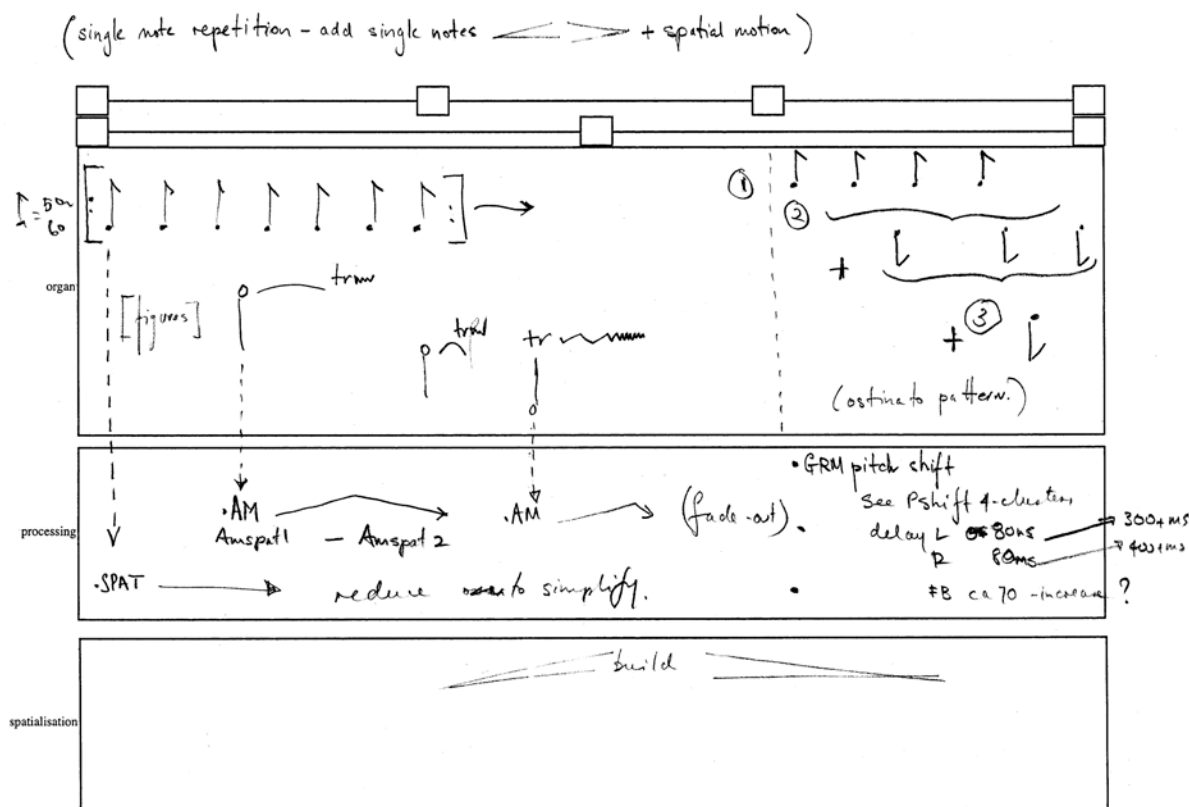 (single note repetition – add single notes + spatial motion)
♪ = 50 or 60
organ
[figures]
tr
tr
tr
①
②
+
+ ③
(ostinato pattern.)
processing
.AM
Amspat1 – Amspat2
.AM
(fade-out)
.SPAT
reduce to simplify.
• GRM pitch shift
see Pshift 4-clusters
• delay L 80ms 300+ms
R 80ms 400+ms
• FB ca 70 -increase ?
spatialisation
build